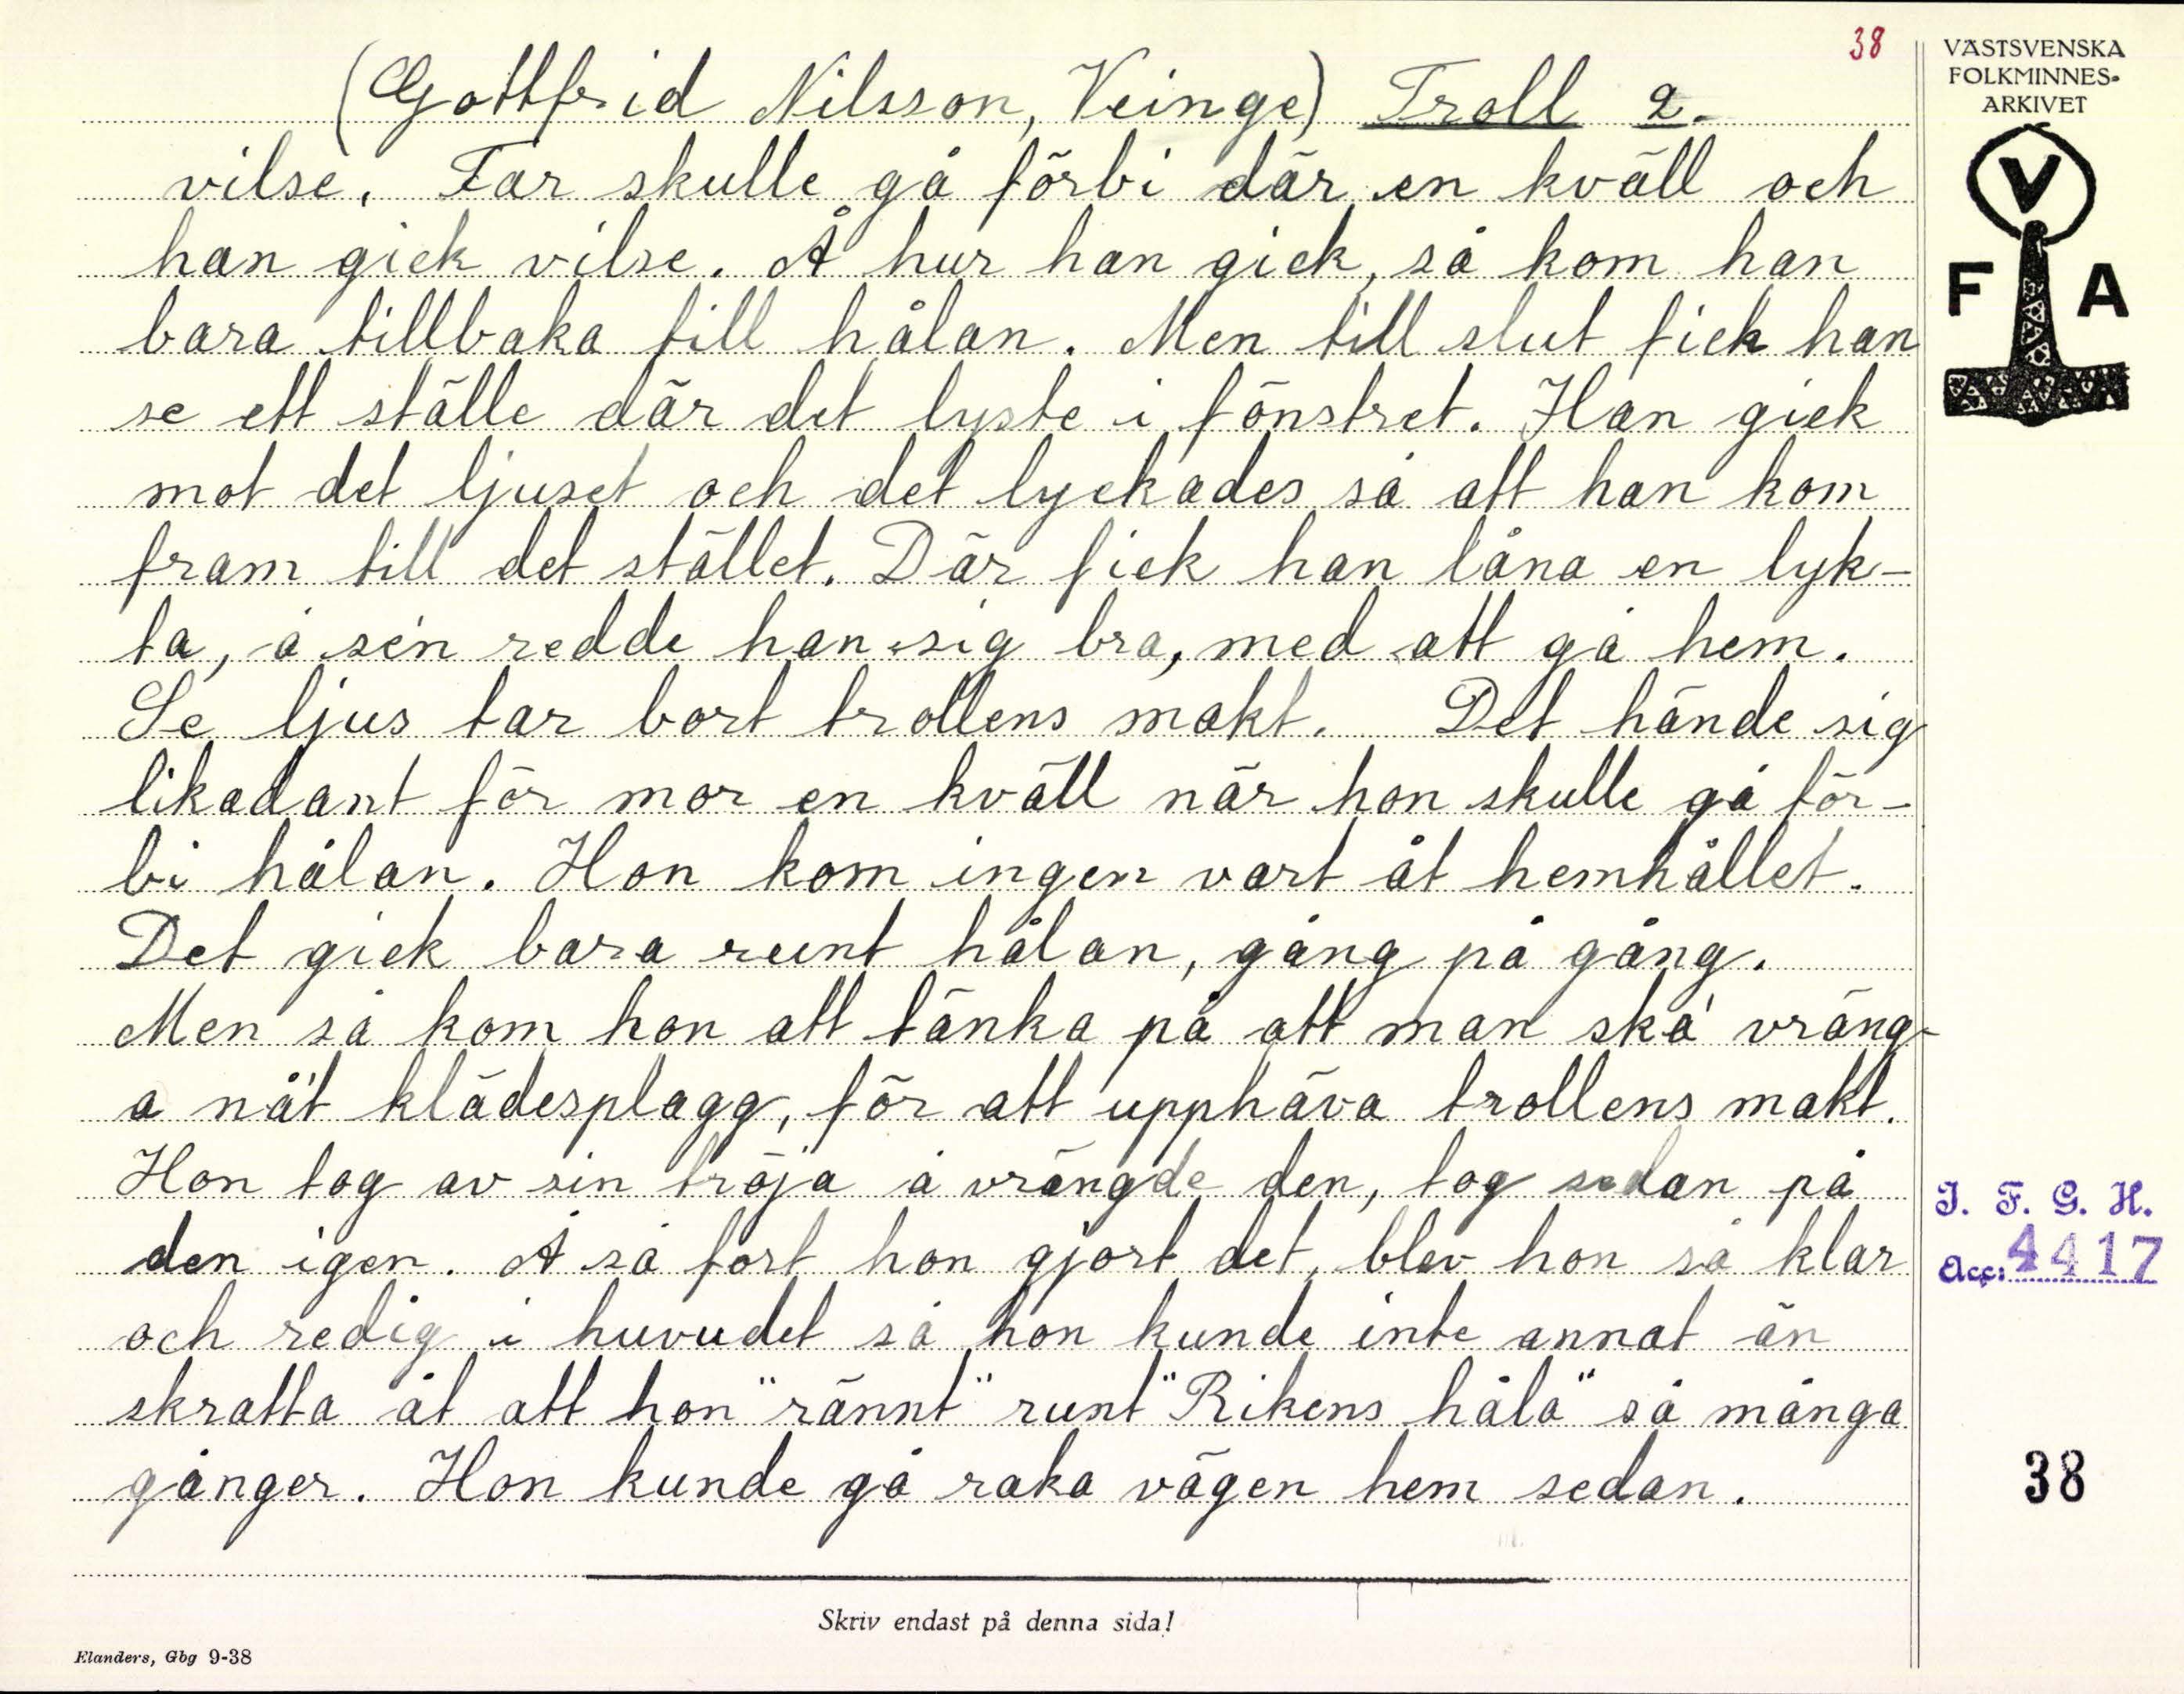 38
(Gottfrid Nilsson, Veinge) Troll 2.
vilse. Far skulle gå förbi där en kväll och
han gick vilse. Å hur han gick, så kom han
bara tillbaka till hålan. Men till slut fick han
se ett ställe där det lyste i fönstret. Han gick
mot det ljuset och det lyckades så att han kom
fram till det stället. Där fick han låna en lyk-
ta, å se'n redde han sig bra, med att gå hem.
Se ljus tar bort trollens makt. Det hände sig
likadant för mor en kväll när hon skulle gå för-
bi hålan. Hon kom ingen vart åt hemhållet.
Det gick bara runt hålan, gång på gång.
Men så kom hon att tänka på att man ska' vräng-
a nå't klädesplagg, för att upphäva trollens makt.
Hon tog av sin tröja å vrängde den, tog sedan på
den igen. Å så fort hon gjort det, blev hon så klar
och redig i huvudet så hon kunde inte annat än
skratta åt att hon "rännt" runt "Rikens håla" så många
gånger. Hon kunde gå raka vägen hem sedan.
Skriv endast på denna sida!
Elanders, Gbg 9-38
VÄSTSVENSKA
FOLKMINNES-
ARKIVET
V
F A
I. F. G. H.
Acc: 4417
38